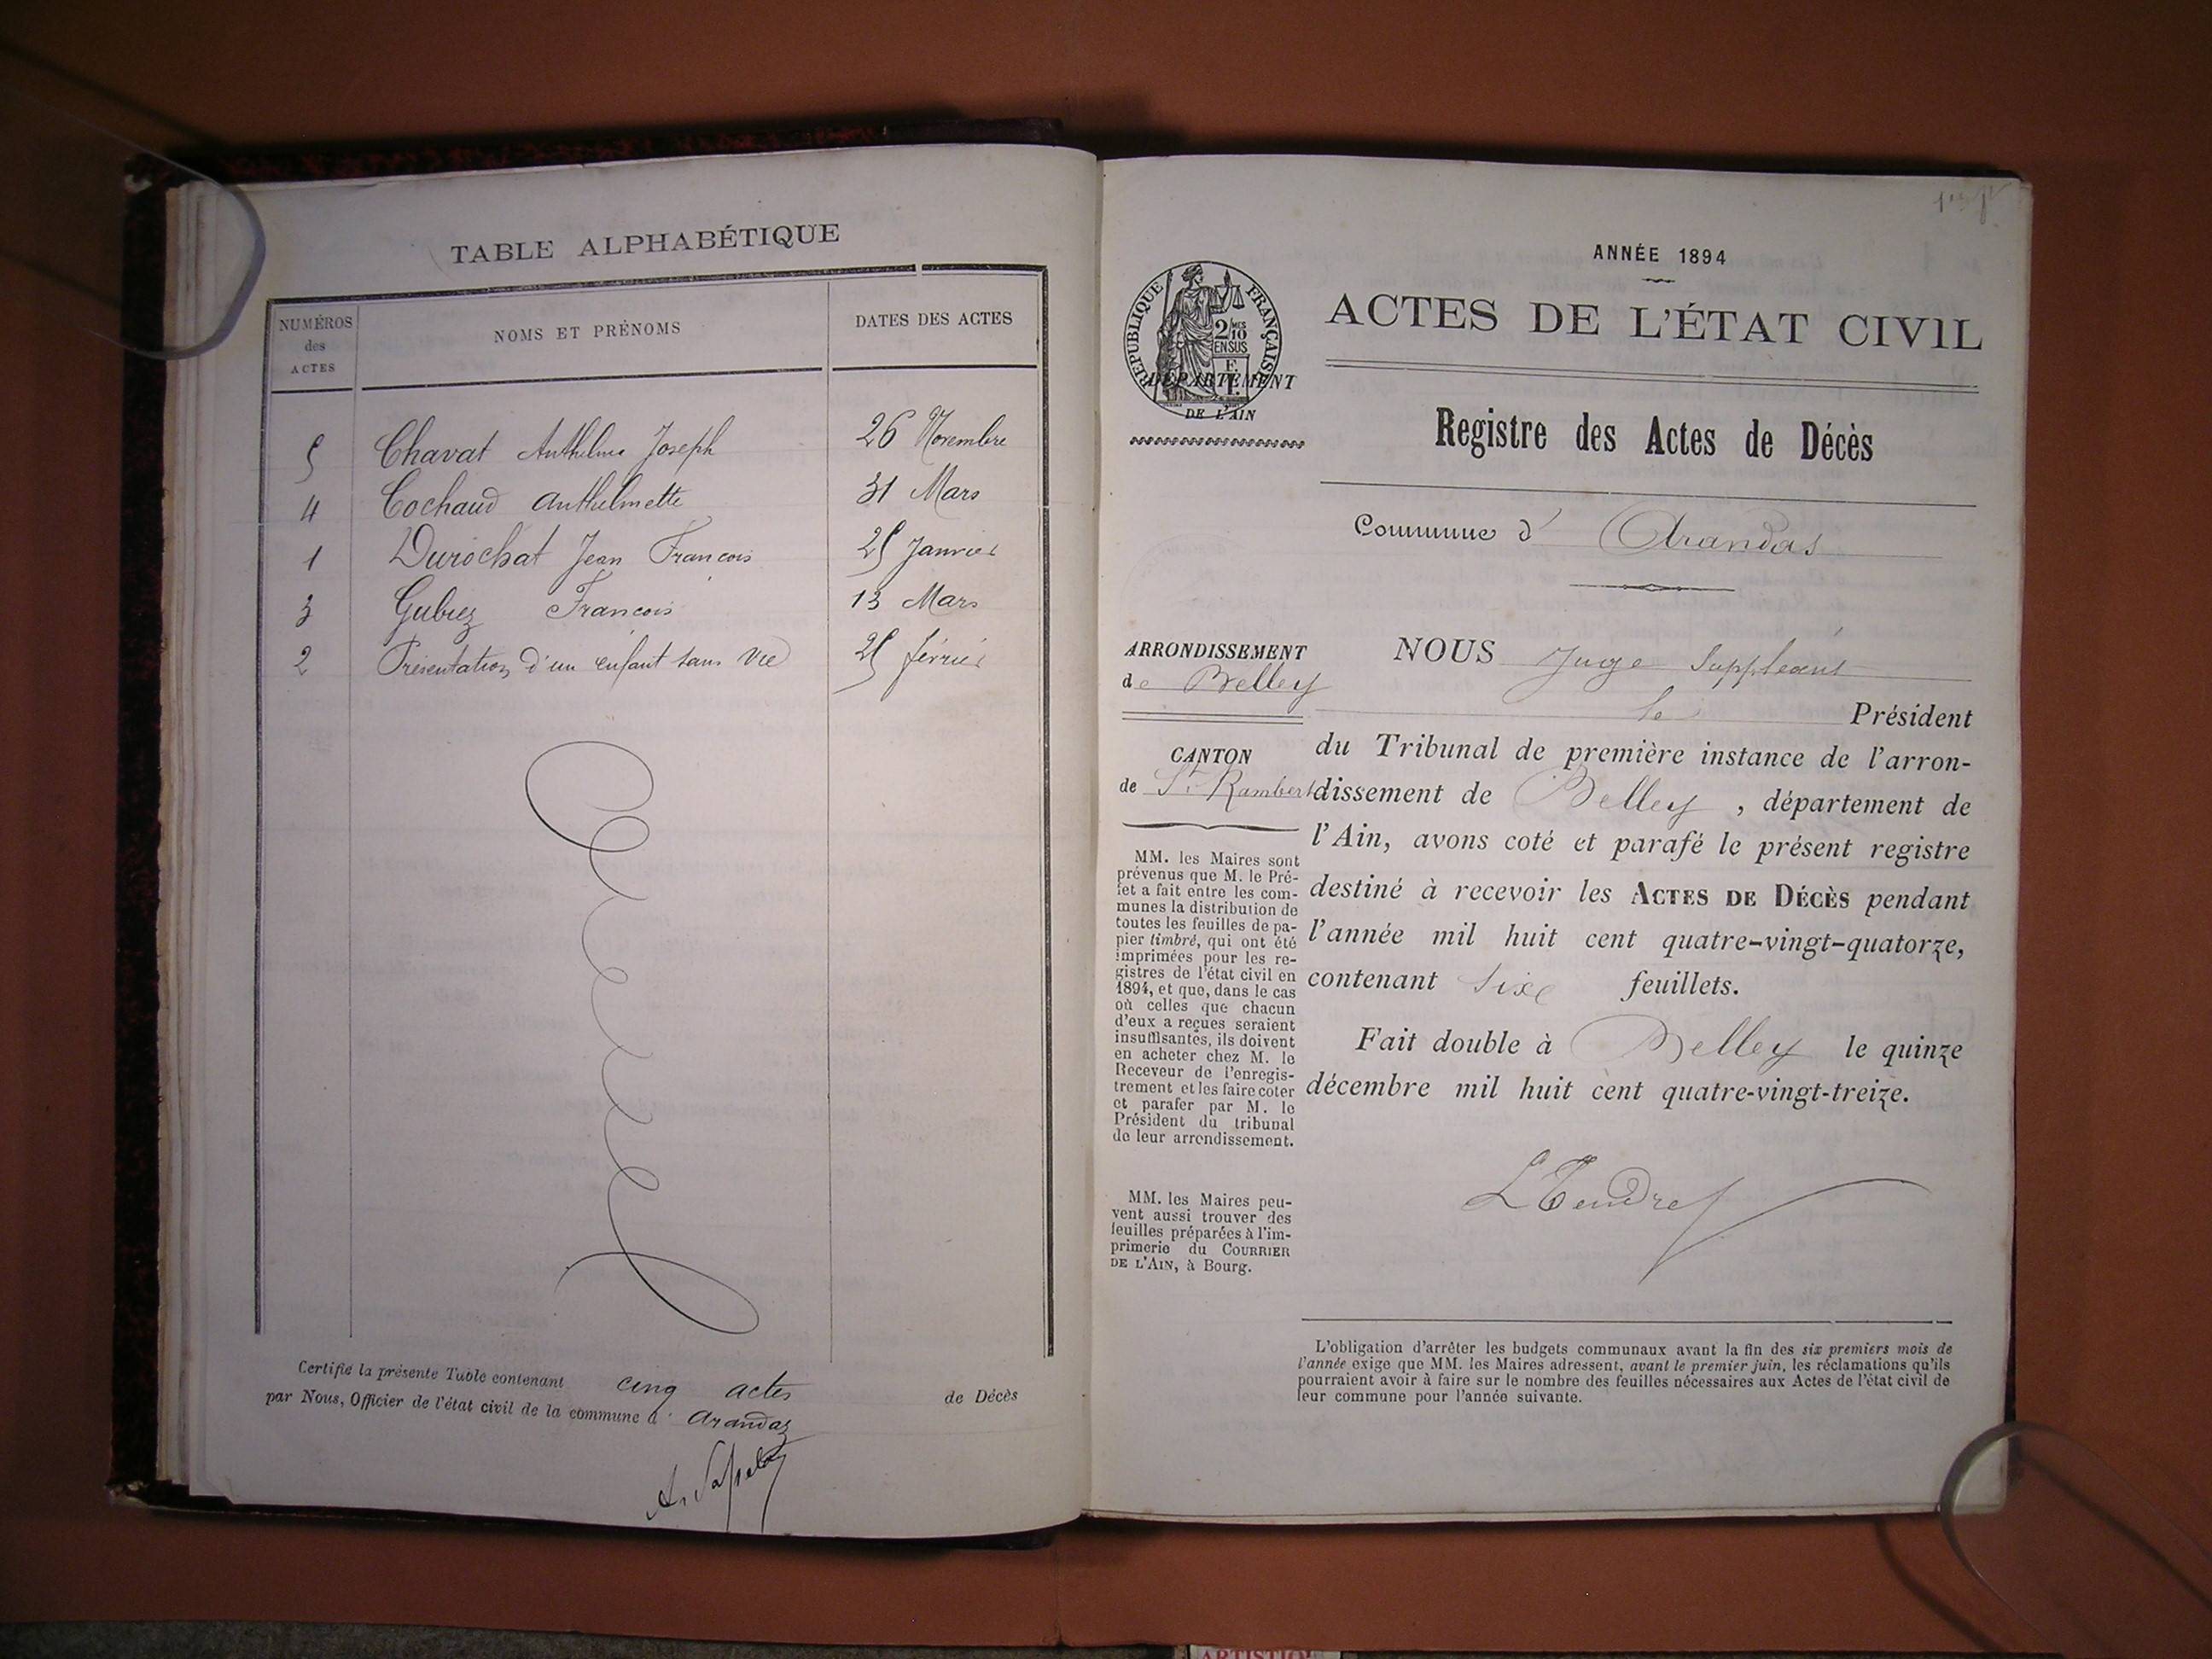 TABLE ALPHABÉTIQUE
NUMÉROS
des
ACTES
NOMS ET PRÉNOMS
DATES DES ACTES
5 Chavat Anthelme Joseph 26 Novembre
4 Cochaud Anthelmette 31 Mars
1 Durochat Jean Francois 25 Janvier
3 Gubiez Francois 13 Mars
2 Présentation d'un enfant sans vie 25 février
Certifié la présente Table contenant cinq actes de Décès
par Nous, Officier de l'état civil de la commune d' Arandaz
ANNÉE 1894
ACTES DE L'ÉTAT CIVIL
RÉPUBLIQUE FRANÇAISE
2/10 MES
EN SUS
DÉPARTEMENT
DE L'AIN
Registre des Actes de Décès
Commune d' Arandas
ARRONDISSEMENT
de Belley
CANTON
de St Rambert
MM. les Maires sont
prévenus que M. le Pré-
fet a fait entre les com-
munes la distribution de
toutes les feuilles de pa-
pier timbré, qui ont été
imprimées pour les re-
gistres de l'état civil en
1894, et que, dans le cas
où celles que chacun
d'eux a reçues seraient
insuffisantes, ils doivent
en acheter chez M. le
Receveur de l'enregis-
trement et les faire coter
et parafer par M. le
Président du tribunal
de leur arrondissement.
MM. les Maires peu-
vent aussi trouver des
feuilles préparées à l'im-
primerie du COURRIER
DE L'AIN, à Bourg.
NOUS Juge Suppléant
le Président
du Tribunal de première instance de l'arron-
dissement de Belley, département de
l'Ain, avons coté et parafé le présent registre
destiné à recevoir les ACTES DE DÉCÈS pendant
l'année mil huit cent quatre-vingt-quatorze,
contenant six feuillets.
Fait double à Belley le quinze
décembre mil huit cent quatre-vingt-treize.
L Tendret
L'obligation d'arrêter les budgets communaux avant la fin des six premiers mois de
l'année exige que MM. les Maires adressent, avant le premier juin, les réclamations qu'ils
pourraient avoir à faire sur le nombre des feuilles nécessaires aux Actes de l'état civil de
leur commune pour l'année suivante.